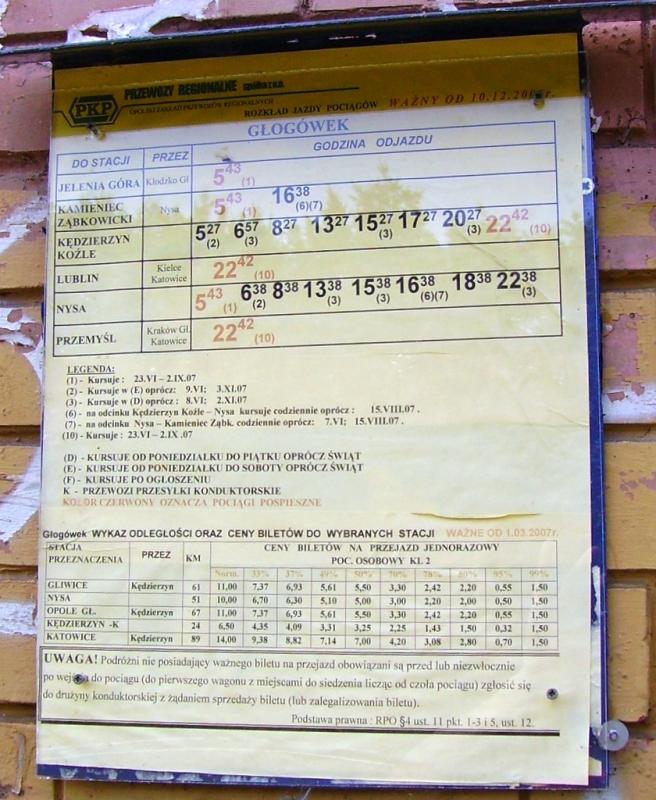 PKP PRZEWOZY REGIONALNE spółka z o.o.
OPOLSKI ZAKŁAD PRZEWOZÓW REGIONALNYCH
ROZKŁAD JAZDY POCIĄGÓW WAŻNY OD 10.12.
GŁOGÓWEK
DO STACJI PRZEZ GODZINA ODJAZDU
JELENIA GÓRA Kłodzko Gł 5 43 (1)
KAMIENIEC ZĄBKOWICKI Nysa 5 43 (1) 16 38 (6)(7)
KĘDZIERZYN KOŹLE 5 27 (2) 6 57 (3) 8 27 13 27 15 27 (3) 17 27 20 27 (3) 22 42 (10)
LUBLIN Kielce Katowice 22 42 (10)
NYSA 5 43 (1) 6 38 (2) 8 38 13 38 (3) 15 38 (3) 16 38 (6)(7) 18 38 22 38 (3)
PRZEMYŚL Kraków Gł. Katowice 22 42 (10)
LEGENDA:
(1) - Kursuje : 23.VI – 2.IX.07
(2) - Kursuje w (E) oprócz: 9.VI; 3.XI.07
(3) - Kursuje w (D) oprócz : 8.VI; 2.XI.07
(6) - na odcinku Kędzierzyn Koźle – Nysa kursuje codziennie oprócz : 15.VIII.07 .
(7) - na odcinku Nysa – Kamieniec Ząbk. codziennie oprócz: 7.VI; 15.VIII.07 .
(10) - Kursuje : 23.VI – 2.IX .07
(D) - KURSUJE OD PONIEDZIAŁKU DO PIĄTKU OPRÓCZ ŚWIĄT
(E) - KURSUJE OD PONIEDZIAŁKU DO SOBOTY OPRÓCZ ŚWIĄT
(F) - KURSUJE PO OGŁOSZENIU
K - PRZEWOZI PRZESYŁKI KONDUKTORSKIE
KOLOR CZERWONY OZNACZA POCIĄGI POSPIESZNE
Głogówek WYKAZ ODLEGŁOŚCI ORAZ CENY BILETÓW DO WYBRANYCH STACJI WAŻNE OD 1.03.2007r.
STACJA PRZEZNACZENIA PRZEZ KM CENY BILETÓW NA PRZEJAZD JEDNORAZOWY
POC. OSOBOWY KL 2
Norm. 33% 37% 49% 50% 70% 78% 80% 95% 99%
GLIWICE Kędzierzyn 61 11,00 7,37 6,93 5,61 5,50 3,30 2,42 2,20 0,55 1,50
NYSA 51 10,00 6,70 6,30 5,10 5,00 3,00 2,20 2,00 0,50 1,50
OPOLE GŁ. Kędzierzyn 67 11,00 7,37 6,93 5,61 5,50 3,30 2,42 2,20 0,55 1,50
KĘDZIERZYN -K 24 6,50 4,35 4,09 3,31 3,25 2,25 1,43 1,50 0,32 1,50
KATOWICE Kędzierzyn 89 14,00 9,38 8,82 7,14 7,00 4,20 3,08 2,80 0,70 1,50
UWAGA! Podróżni nie posiadający ważnego biletu na przejazd obowiązani są przed lub niezwłocznie
po wejściu do pociągu (do pierwszego wagonu z miejscami do siedzenia licząc od czoła pociągu) zgłosić się
do drużyny konduktorskiej z żądaniem sprzedaży biletu (lub zalegalizowania biletu).
Podstawa prawna : RPO §4 ust. 11 pkt. 1-3 i 5, ust. 12.